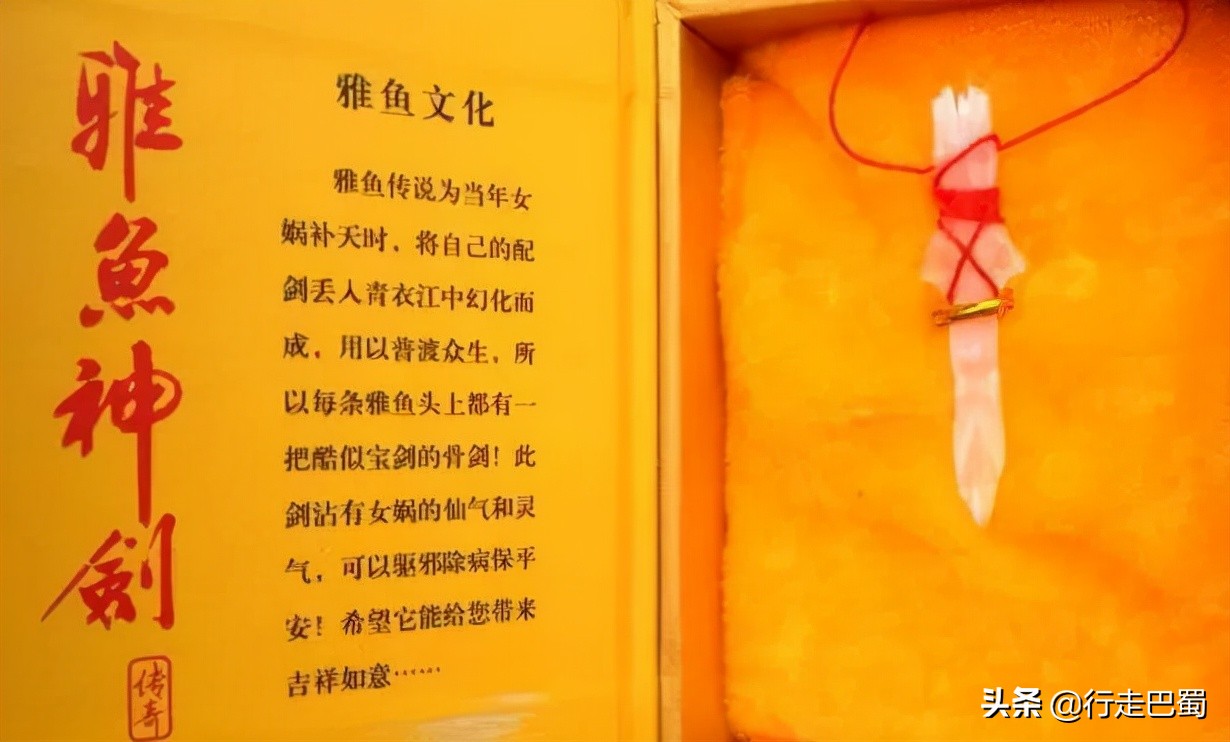 雅魚神劍
传奇
雅鱼文化
雅鱼传说为当年女
娲补天时，将自己的配
剑丢人青衣江中幻化而
成，用以普渡众生，所
以每条雅鱼头上都有一
把酷似宝剑的骨剑！此
剑沾有女娲的仙气和灵
气，可以驱邪除病保平
安！希望它能给您带来
吉祥如意……
头条 @行走巴蜀